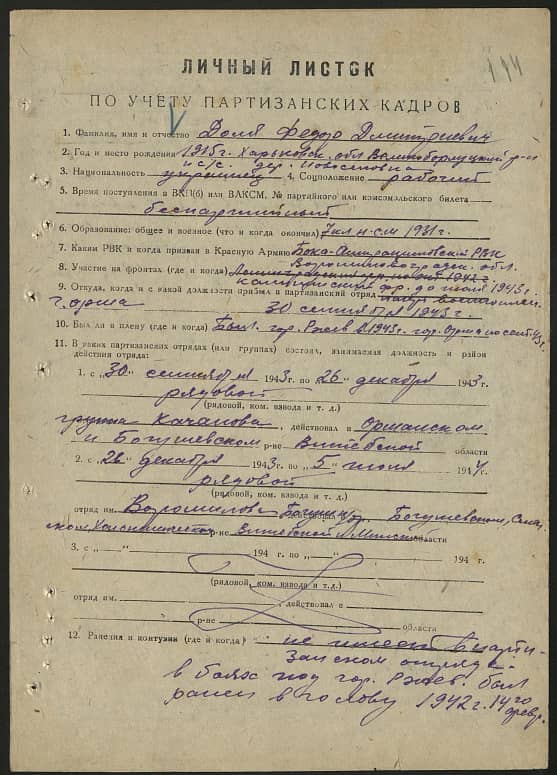 114
ЛИЧНЫЙ ЛИСТОК
ПО УЧЕТУ ПАРТИЗАНСКИХ КАДРОВ
1. Фамилия, имя и отчество Доля Федор Дмитриевич
2. Год и место рождения 1915г. Харьковск. обл Великобурлуцкий р-н
с/с. дер.
3. Национальность украинец 4. Соцположение рабочий
5. Время поступления в ВКП(б) или ВЛКСМ, № партийного или комсомольского билета
беспартийный
6. Образование: общее и военное (что и когда окончил) 7кл н-см 1931г.
7. Каким РВК и когда призван в Красную Армию РВК
Ворошиловоградск. обл.
8. Участие на фронтах (где и когда) Ленинградский 1942г
фр. до июля 1943г.
9. Откуда, когда и с какой должности пришел в партизанский отряд
г. орша 30 сентября 1943г.
10. Был ли в плену (где и когда) Был. гор. Ржев 1943г. гор. Орша по сент. 43г.
11. В каких партизанских отрядах (или группах) состоял, занимаемая должность и район
действия отряда:
1. с „30“ сентября 1943г. по „26“ декабря 1943г.
рядовой
(рядовой, ком. взвода и т. д.)
группа Качанова, действовал в Оршанском
и Богушевском р-не Витебской области
2. с „26“ декабря 1943г. по „5“ июля 1944г.
рядовой
(рядовой, ком. взвода и т. д.)
отряд им. Ворошилова действовал в Богушевском,
р-не Витебской и Минской области
3. с „ “ 194 г. по „ “ 194 г.
(рядовой, ком. взвода и т. д.)
отряд им. , действовал в
р-не области
12. Ранения и контузии (где и когда) не имеет в парти-
занском отряде.
в боях под гор. Ржев. был
ранен в голову 1942г. 14го
февр.